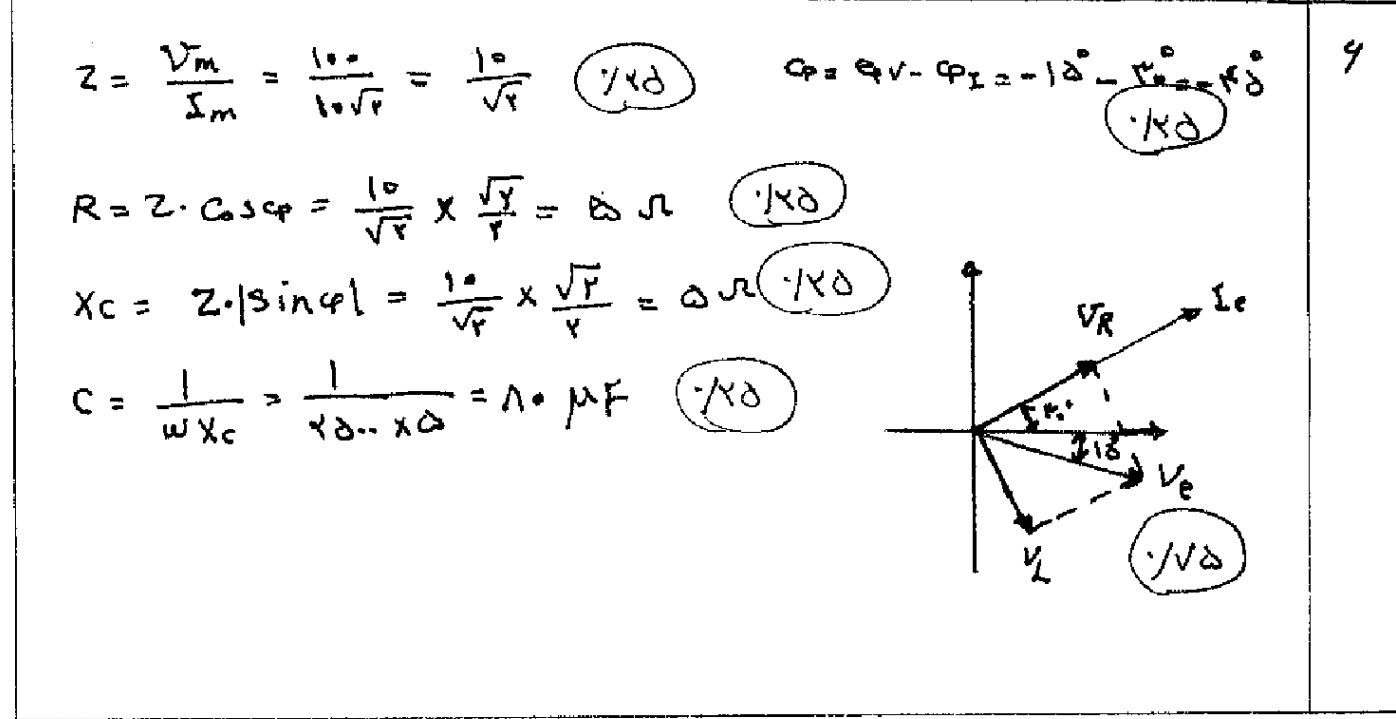 Z = Vm / Im = ۱۰۰ / ۱۰√۲ = ۱۰ / √۲ (۰/۲۵) φ = φV - φI = -۱۵° - ۳۰° = -۴۵° (۰/۲۵) ۹
R = Z · Cosφ = ۱۰ / √۲ × √۲ / ۲ = ۵ Ω (۰/۲۵)
XC = Z·|Sinφ| = ۱۰ / √۲ × √۲ / ۲ = ۵ Ω (۰/۲۵)
C = ۱ / ωXc = ۱ / ۲۵۰۰ × ۵ = ۸۰ μF (۰/۲۵)
VR Ie
۳۰°
۱۵°
Ve
VL (۰/۷۵)